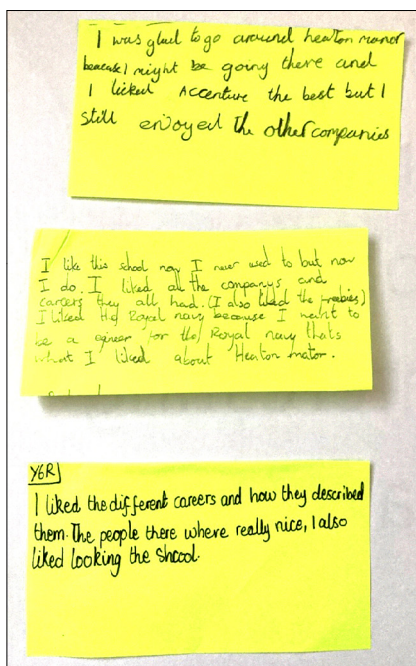 I was glad to go around heaton manor
because I might be going there and
I licked Accenture the best but I
still enjoyed the other companies
I like this school now I never used to but now
I do. I liked all the companys and
careers they all had. (I also liked the freebies)
I liked the Royal navy because I want to
be a for the Royal navy thats
what I liked about Heaton mator.
Y6R
I liked the different careers and how they described
them. The people there where really nice, I also
liked looking the shcool.